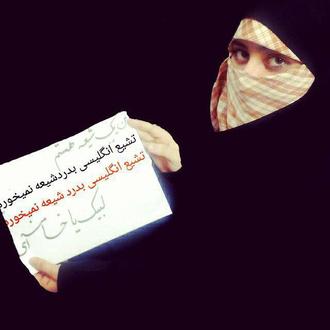 من یک شیعه هستم
تشیع انگلیسی بدردشیعه نمیخورد
تشیع انگلیسی بدرد شیعه نمیخورد
لبیک یا خامنه ای